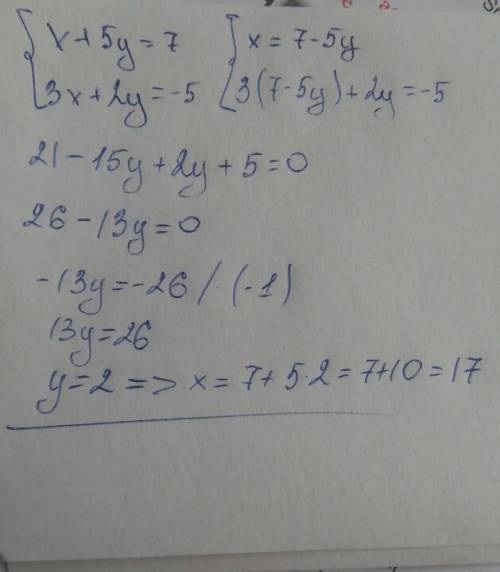 x + 5y = 7
3x + 2y = -5
x = 7 - 5y
3(7 - 5y) + 2y = -5
21 - 15y + 2y + 5 = 0
26 - 13y = 0
-13y = -26 / · (-1)
13y = 26
y = 2 => x = 7 + 5·2 = 7+10 = 17